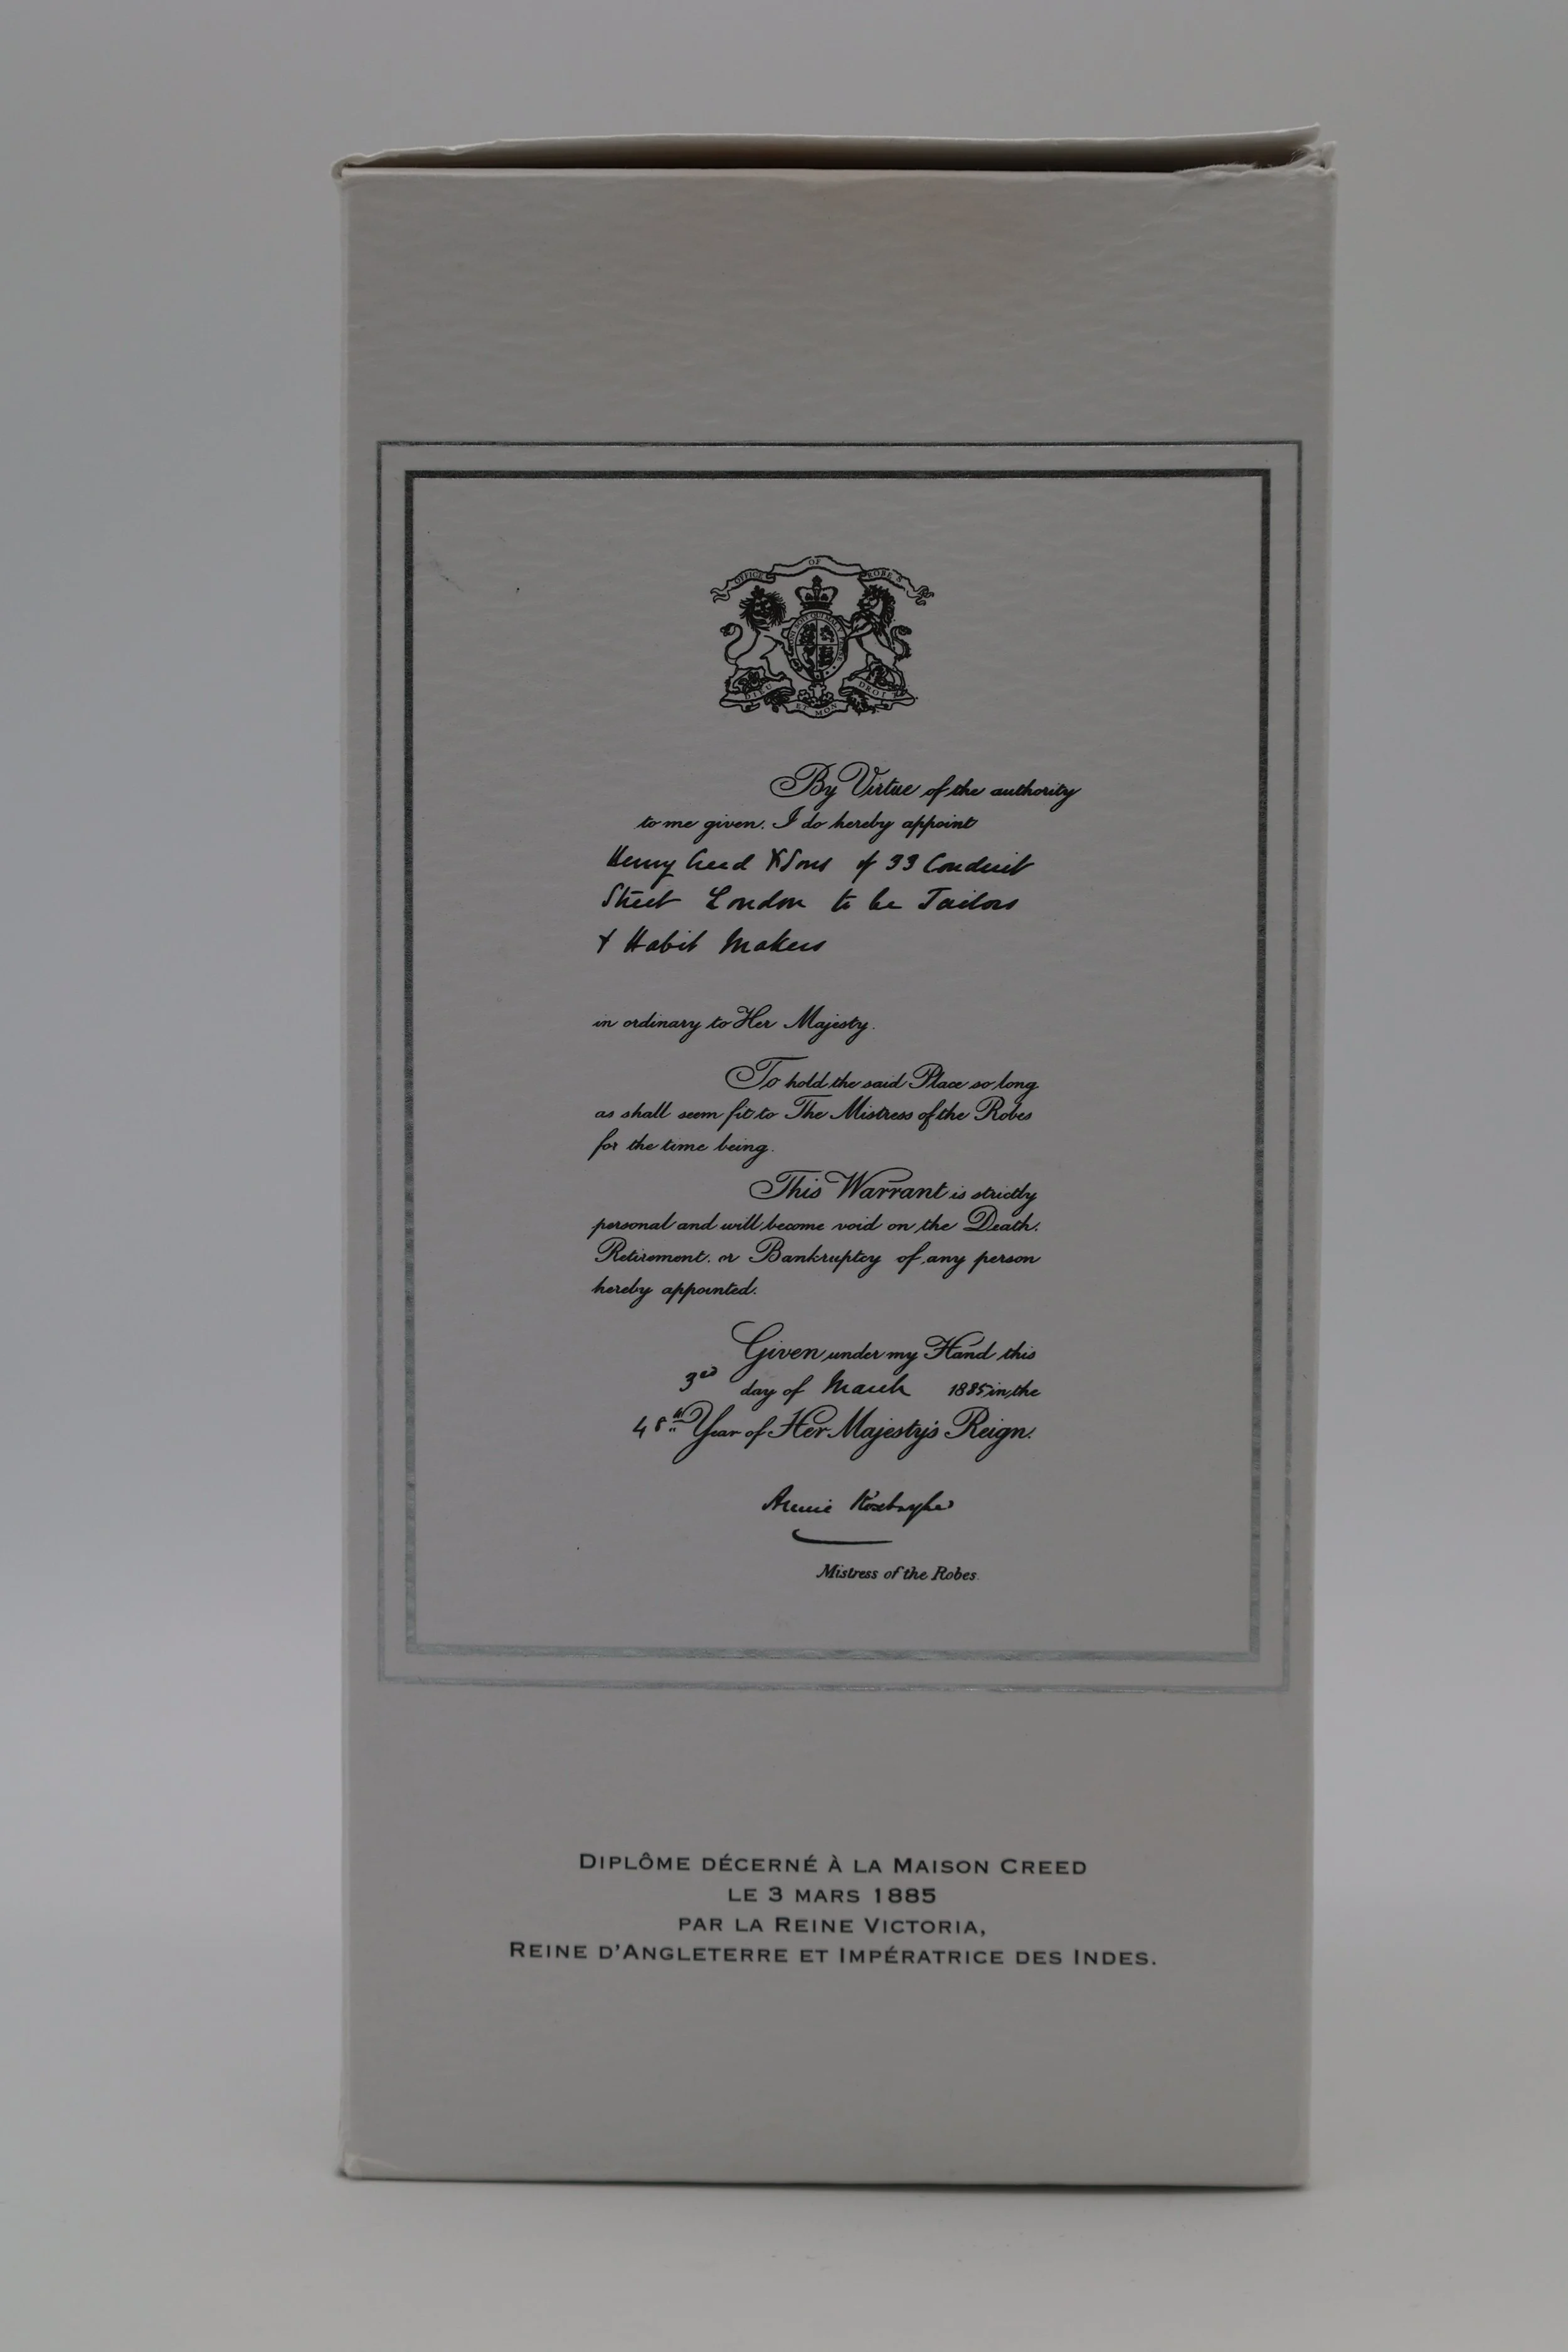 OFFICE OF ROBES
DIEU ET MON DROIT
By Virtue of the authority
to me given. I do hereby appoint
Henry Creed & Sons of 33 Conduit
Street London to be Tailors
& Habit Makers
in ordinary to Her Majesty.
To hold the said Place so long
as shall seem fit to The Mistress of the Robes
for the time being.
This Warrant is strictly
personal and will become void on the Death.
Retirement. or Bankruptcy of any person
hereby appointed.
Given under my Hand this
3rd day of March 1885 in the
48th Year of Her Majesty's Reign.
Annie Roxburghe
Mistress of the Robes.
DIPLÔME DÉCERNÉ À LA MAISON CREED
LE 3 MARS 1885
PAR LA REINE VICTORIA,
REINE D'ANGLETERRE ET IMPÉRATRICE DES INDES.